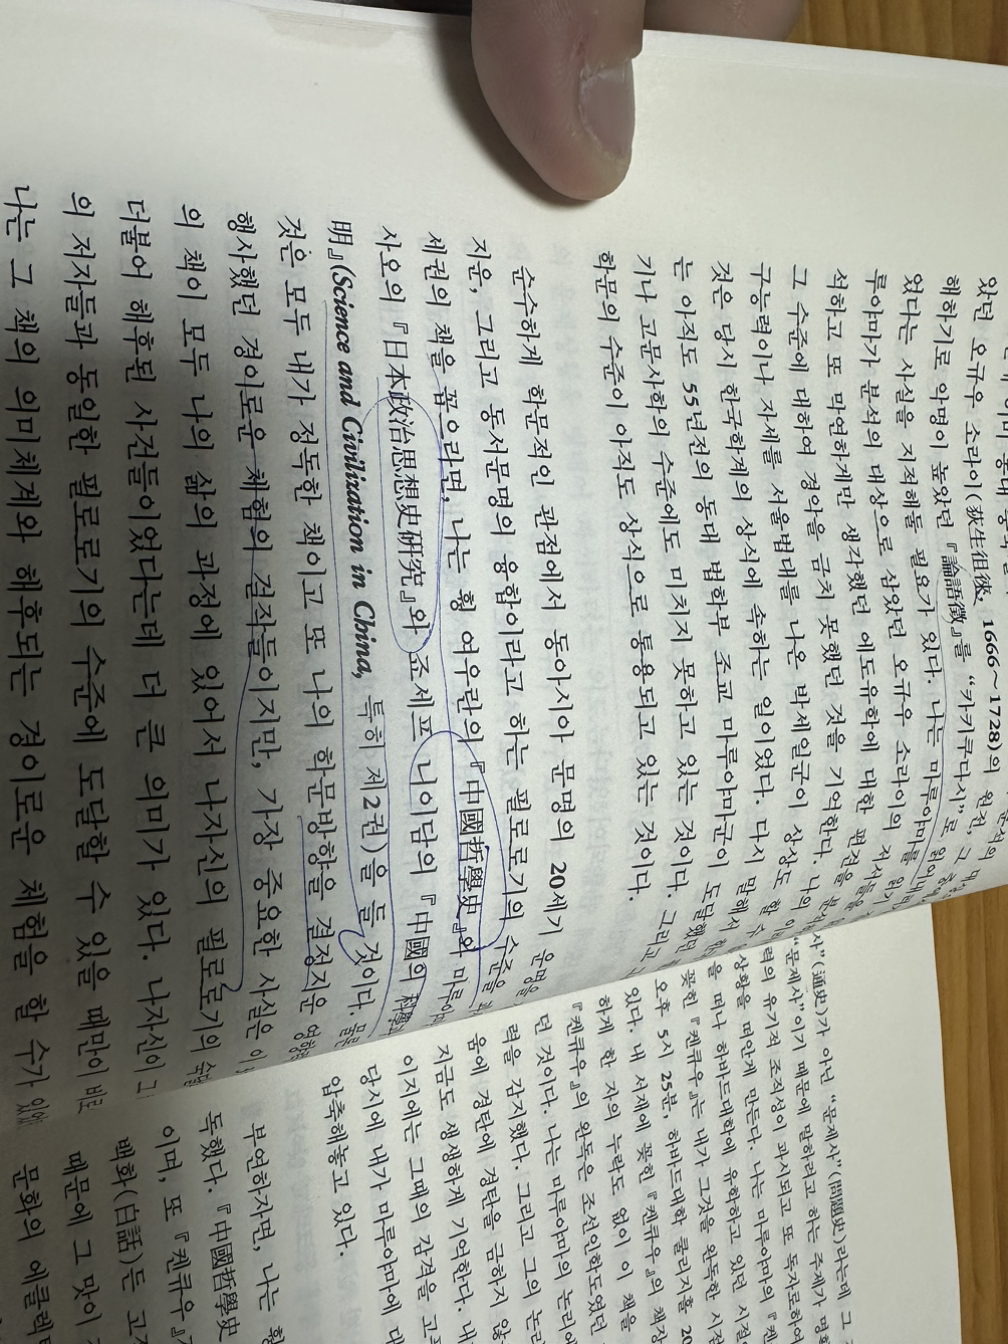 았던 오규우 소라이(荻生徂徠, 1666~1728)의 원전, 그
해하기로 악명이 높았던 『論語徵』를 "카키쿠다시"로 읽어내
었다는 사실을 지적해둘 필요가 있다. 나는 마루야마를 읽기
루야마가 분석의 대상으로 삼았던 오규우 소라이의 저서들을
석하고 또 막연하게만 생각했던 에도유학에 대한 편견을
그 수준에 대하여 경악을 금치 못했던 것을 기억한다. 나의
구능력이나 자세를 서울법대를 나온 박세일군이 상상도 할 수
것은 당시 한국학계의 상식에 속하는 일이었다. 다시 말해서
는 아직도 55년전의 동대 법학부 조교 마루야마군이 도달했던
기나 고문사학의 수준에도 미치지 못하고 있는 것이다. 그리고
학문의 수준이 아직도 상식으로 통용되고 있는 것이다.
순수하게 학문적인 관점에서 동아시아 문명의 20세기 운명을
지운, 그리고 동서문명의 융합이라고 하는 필로로기의 수준을
세권의 책을 꼽으라면, 나는 황 여우란의 『中國哲學史』와 마루야마
사오의 『日本政治思想史硏究』와 죠세프 니이담의 『中國의 科學
明』(Science and Civilization in China, 특히 제2권)을 들 것이다. 물론
것은 모두 내가 정독한 책이고 또 나의 학문방향을 결정지운 영향
행사했던 경이로운 체험의 걸작들이지만, 가장 중요한 사실은 이
의 책이 모두 나의 삶의 과정에 있어서 나자신의 필로로기의
더불어 해후된 사건들이었다는데 더 큰 의미가 있다. 나자신이 그
의 저자들과 동일한 필로로기의 수준에 도달할 수 있을 때만이 바로
나는 그 책의 의미체계와 해후되는 경이로운 체험을 할 수가 있었
사"(通史)가 아닌 "문제사"(問題史)라는데 그
"문제사"이기 때문에 말하려고 하는 주제가 명
력의 유기적 조직성이 과시되고 또 독자로하여
상황을 편안케 만든다. 나는 마루야마의 『켄
을 떠나 하바드대학에 유학하고 있던 시절
꽂힌 『켄큐우』는 내가 그것을 완독한 시점
오후 5시 25분, 하바드대학 쿨리지홀 20
있다. 내 서재에 꽂힌 『켄큐우』의 책장
하게 한 자의 누락도 없이 이 책을
『켄큐우』의 완독은 조선인학도였던
던 것이다. 나는 마루야마의 논리에
력을 감지했다. 그리고 그의 논리
움에 경탄에 경탄을 금하지 않
지금도 생생하게 기억한다. 내
이지에는 그때의 감격을 고
당시에 내가 마루야마에 대
압축해놓고 있다.
부연하자면, 나는 황
독했다. 『中國哲學史
이며, 또 『켄큐우』
백화(白話)든 고
때문에 그 맛이
문화의 에클릭